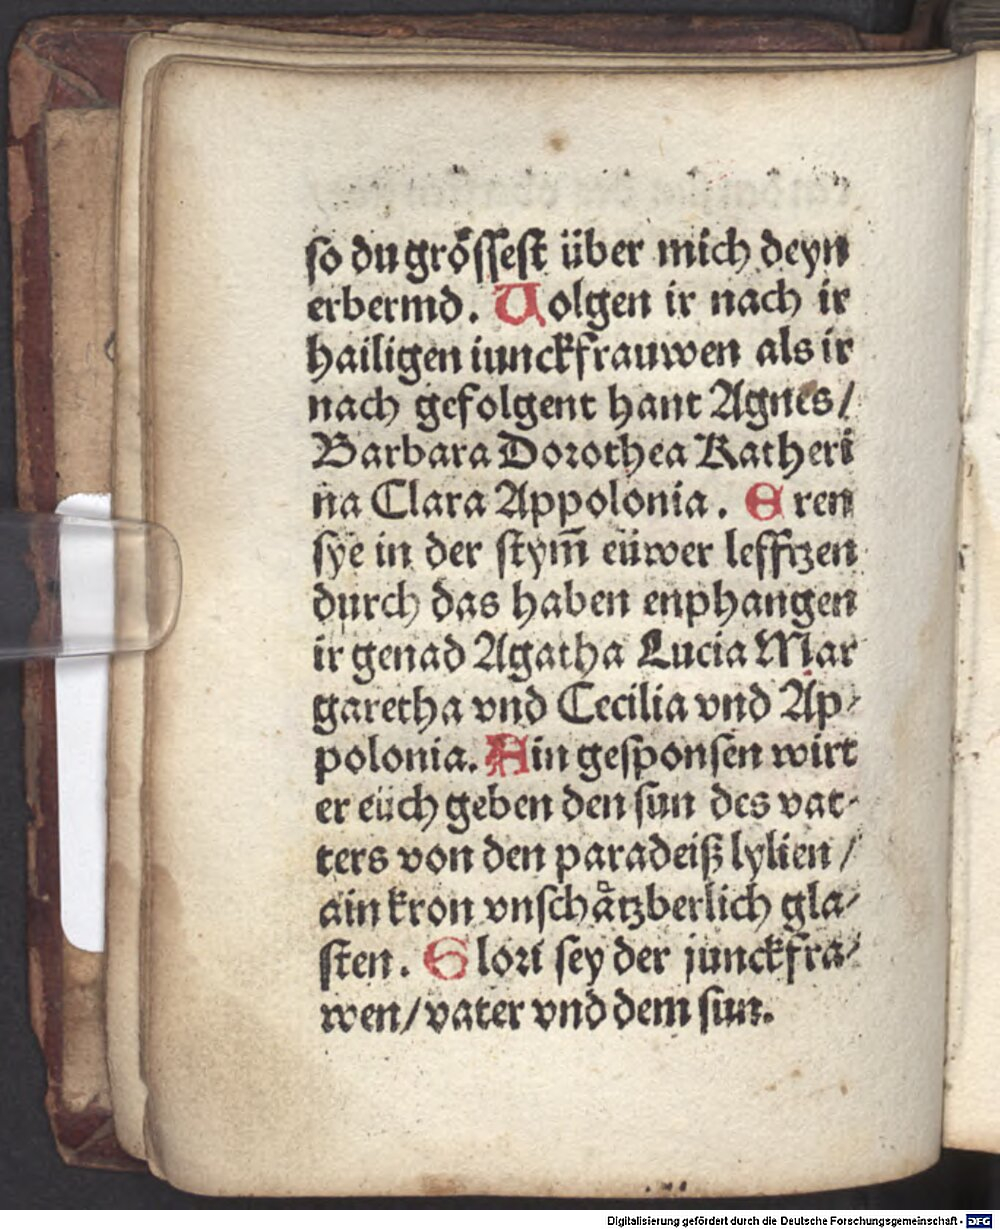 so du grössest über mich deyn
erbermd. Uolgen ir nach ir
hailigen iunckfrauwen als ir
nach gefolgent hant Agnes /
Barbara Dorothea Katheri
na Clara Appolonia. Eren
sye in der stym̄ eüwer lefftzen
durch das haben enphangen
ir genad Agatha Lucia Mar
garetha vnd Cecilia vnd Ap⸗
polonia. Ain gesponsen wirt
er eüch geben den sun des vat⸗
ters von den paradeiß lylien /
ain kron vnschåtzberlich gla⸗
sten. Glori sey der junckfra⸗
wen / vater vnd dem sun.
Digitalisierung gefördert durch die Deutsche Forschungsgemeinschaft - DFG